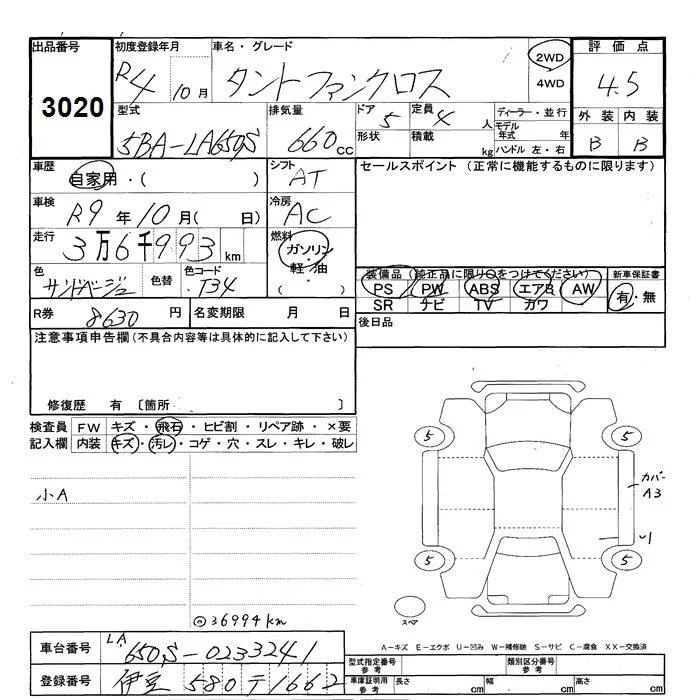 出品番号 3020
初度登録年月 R4 10月
車名・グレード タント ファンクロス
2WD
4WD
評価点 4.5
外装 内装
B B
型式 5BA-LA650S
排気量 660cc
ドア 5
形状
定員 4人
積載 kg
ディーラー・並行
モデル年式 年
ハンドル 左・右
車歴 自家用・( )
シフト AT
セールスポイント (正常に機能するものに限ります)
車検 R9年10月( 日)
冷房 AC
走行 3万6千993km
燃料 ガソリン・軽油・( )
色 サンドベージュ
色替
色コード T34
装備品 (純正品に限り○をつけてください)
PS PW ABS エアB AW
SR ナビ TV カワ
新車保証書
有・無
R券 8630円
名変期限 月 日
後日品
注意事項申告欄(不具合内容等は具体的に記入して下さい)
修復歴 有 〔箇所 〕
検査員記入欄
FW キズ・飛石・ヒビ割・リペア跡・×要
内装 キズ・汚レ・コゲ・穴・スレ・キレ・破レ
小A
◎36994km
5 5
カバー
A3
U1
5 5
スペア
A-キズ E-エクボ U-凹み W-補修跡 S-サビ C-腐食 XX-交換済
車台番号 LA650S-0233241
登録番号 伊豆 580 テ 1662
型式指定番号 参考
類別区分番号 参考
車庫証明用 参考 長さ cm 幅 cm 高さ cm